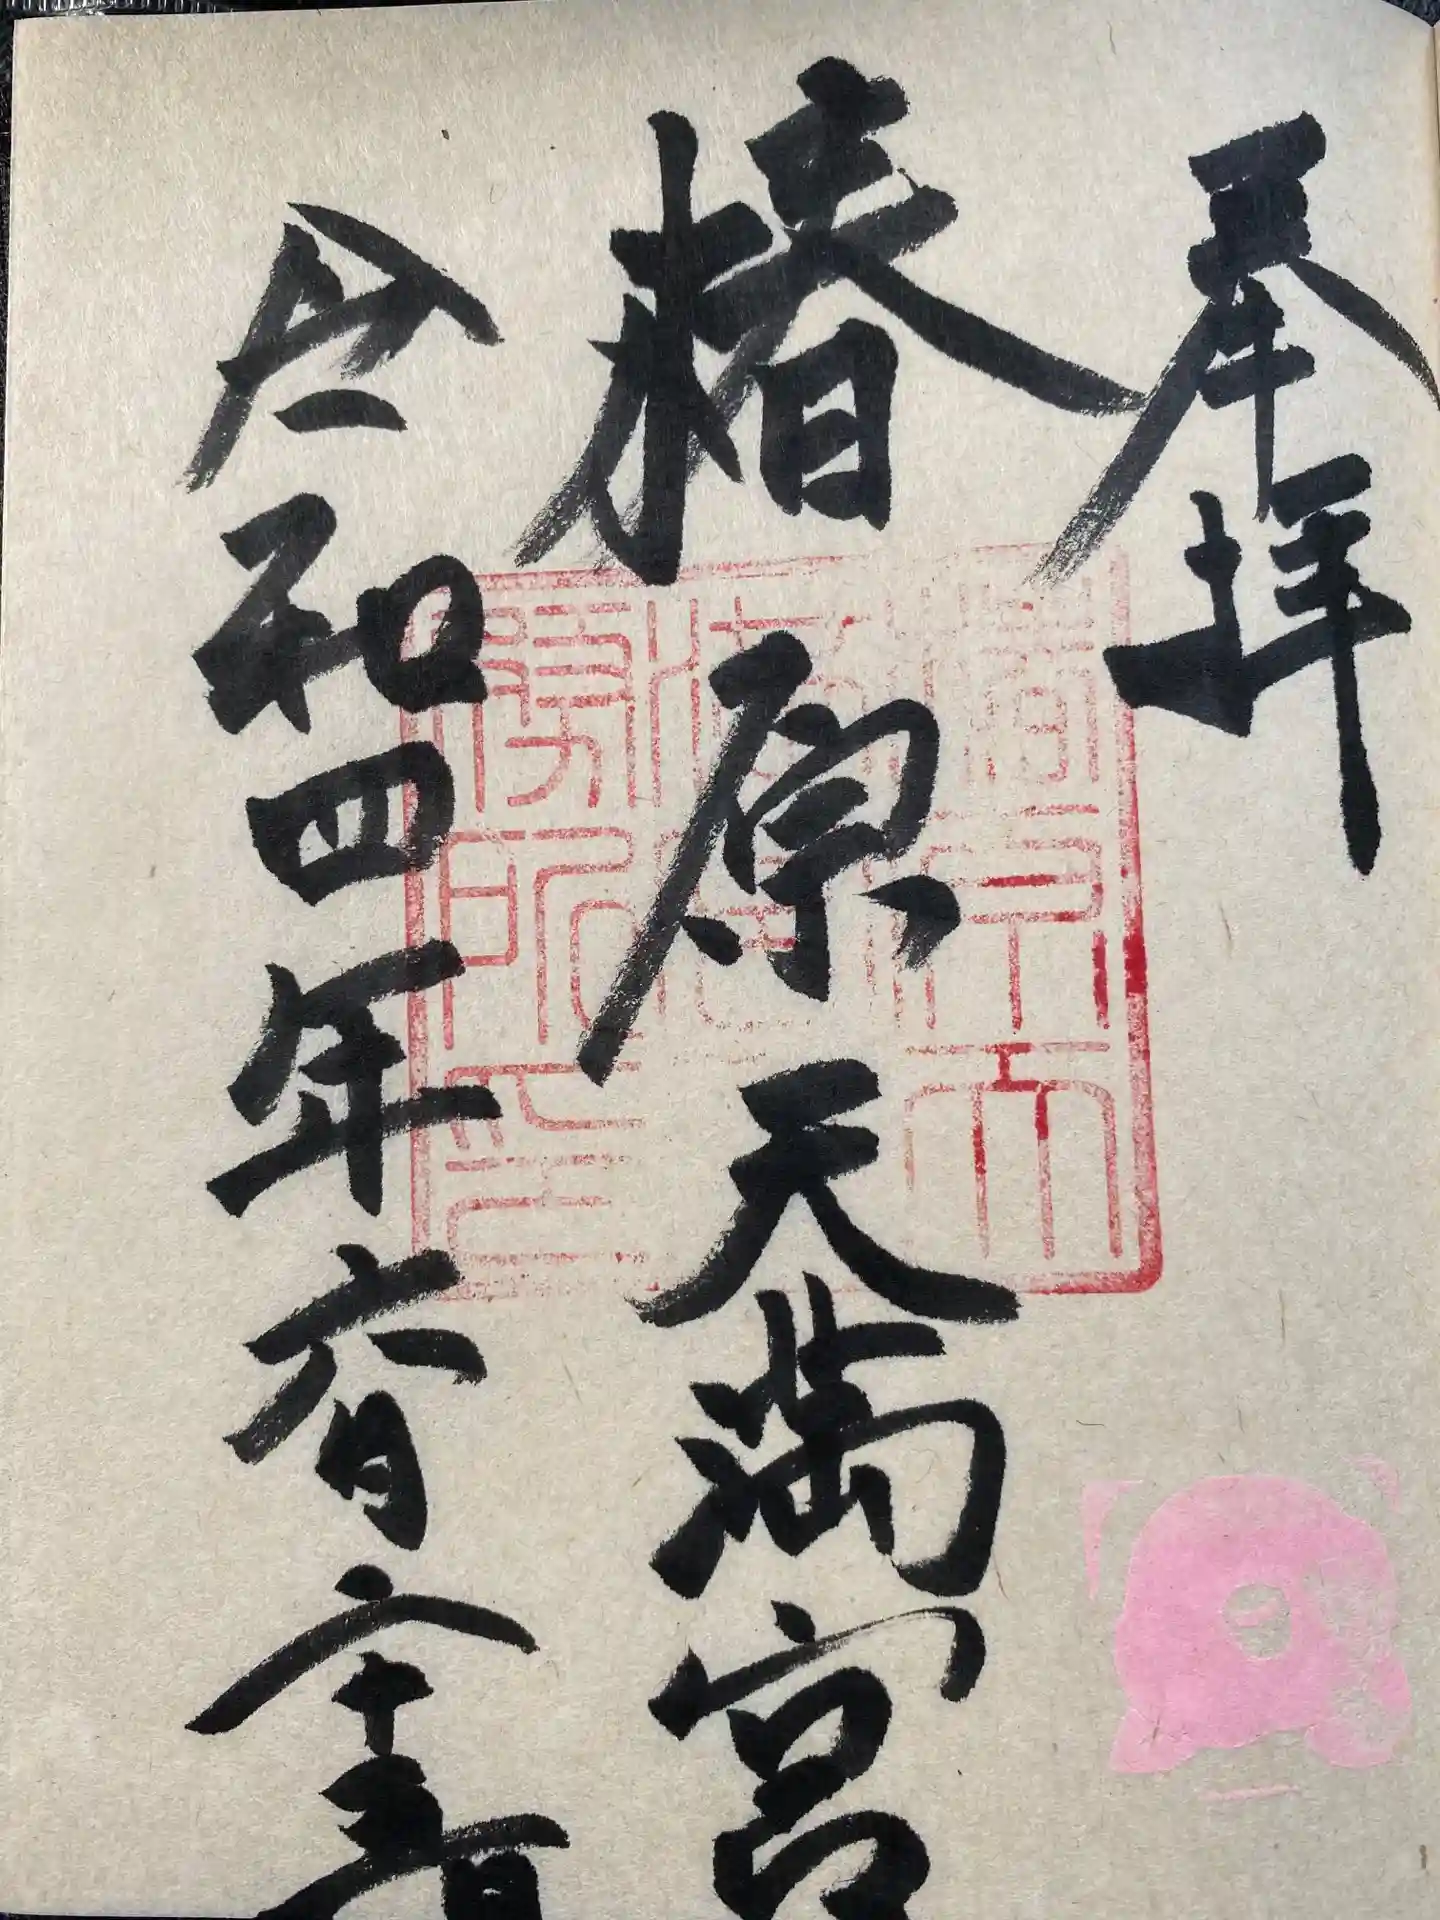 奉拝
椿原天満宮
令和四年六月二十日